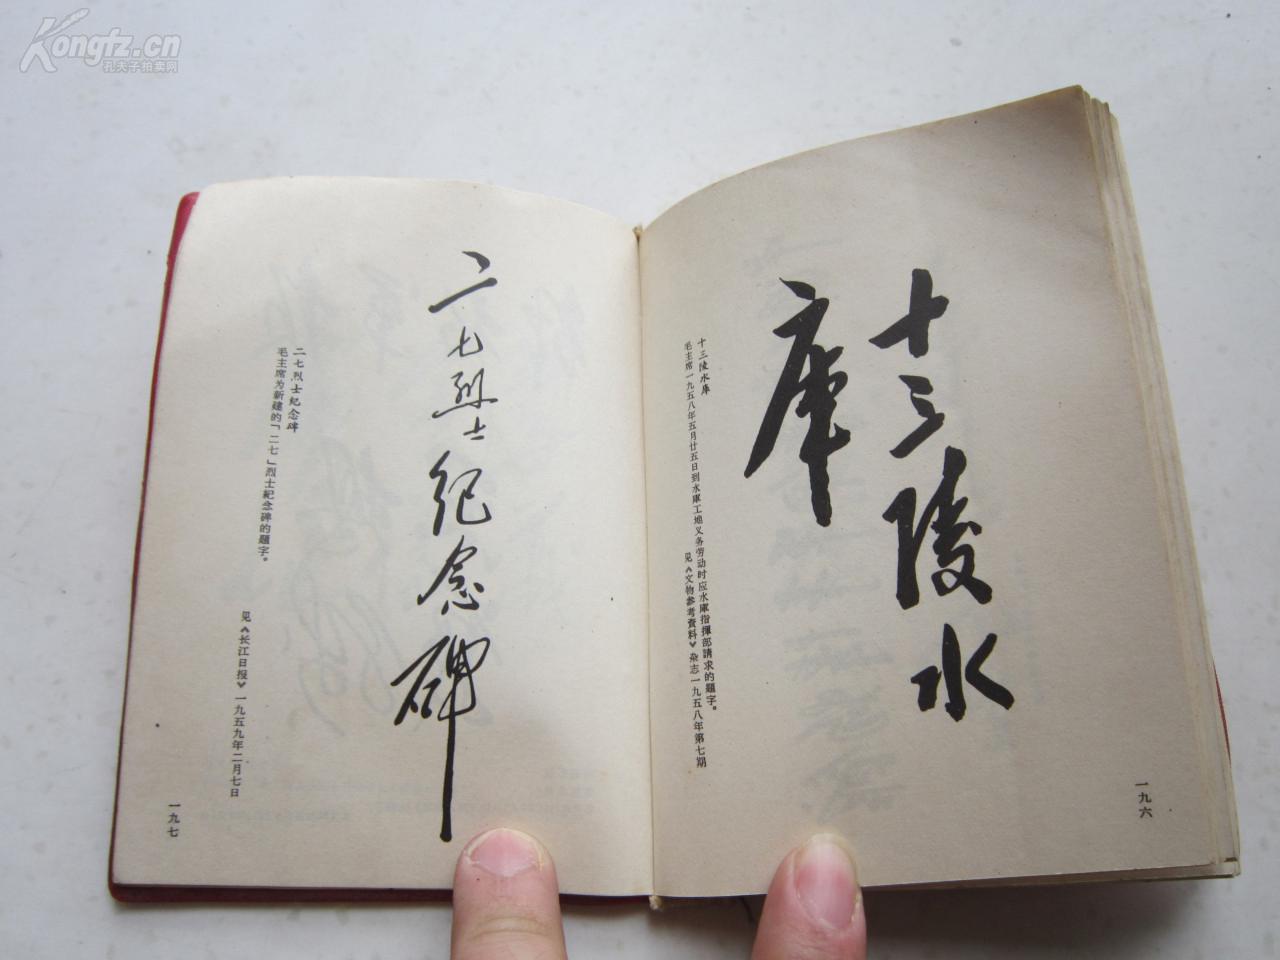 Kongfz.cn
孔夫子拍卖网
十三陵水
库
十三陵水库
毛主席一九五八年五月廿五日到水庫工地义务劳动时应水庫指揮部請求的題字。
见《文物参考資料》杂志一九五八年第七期
一九六
二七烈士纪念碑
二七烈士紀念碑
毛主席为新建的「二七」烈士紀念碑的題字。
见《长江日报》一九五九年二月七日
一九七